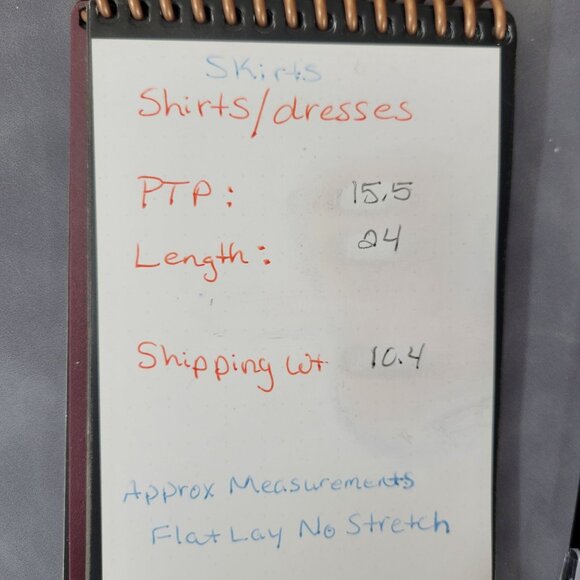 Skirts
Shirts/dresses
PTP: 15.5
Length: 24
Shipping wt 10.4
Approx Measurements
Flat Lay No Stretch